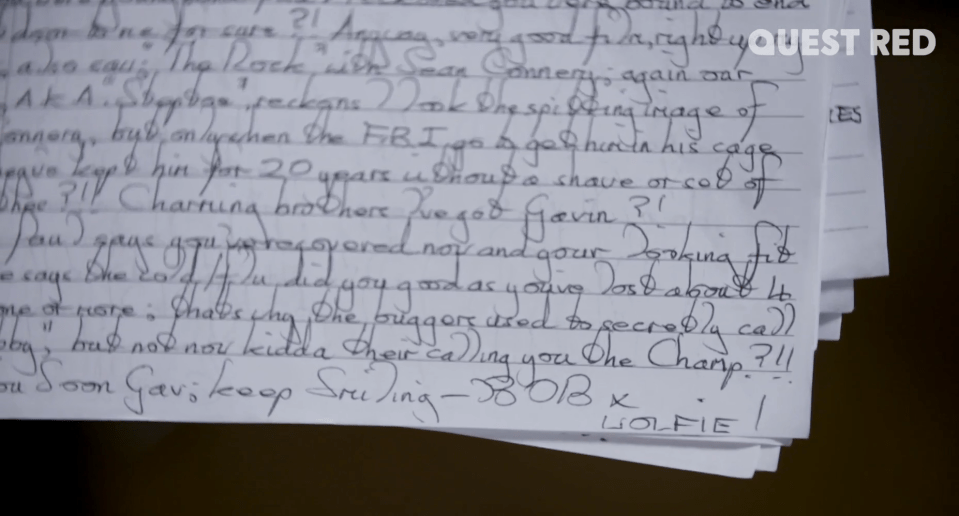 for sure ?! Anyway, very good film, right up
QUEST RED
also saw; "The Rock" with Sean Connery; again our
A.K.A. reckons I look the spitting image of
onnery, but only when the FBI go to get him in his cage
kept him for 20 years without a shave or cob of
?!! Charming brothers I've got Gavin ?!
Paul says you've recovered now and your looking fit
says the cold/flu did you good as youve lost about
more; thats why the buggers used to secretly call
but not now kidda their calling you the Champ.?!!
Soon Gav; keep Smiling –
x
WOLFIE!
ES